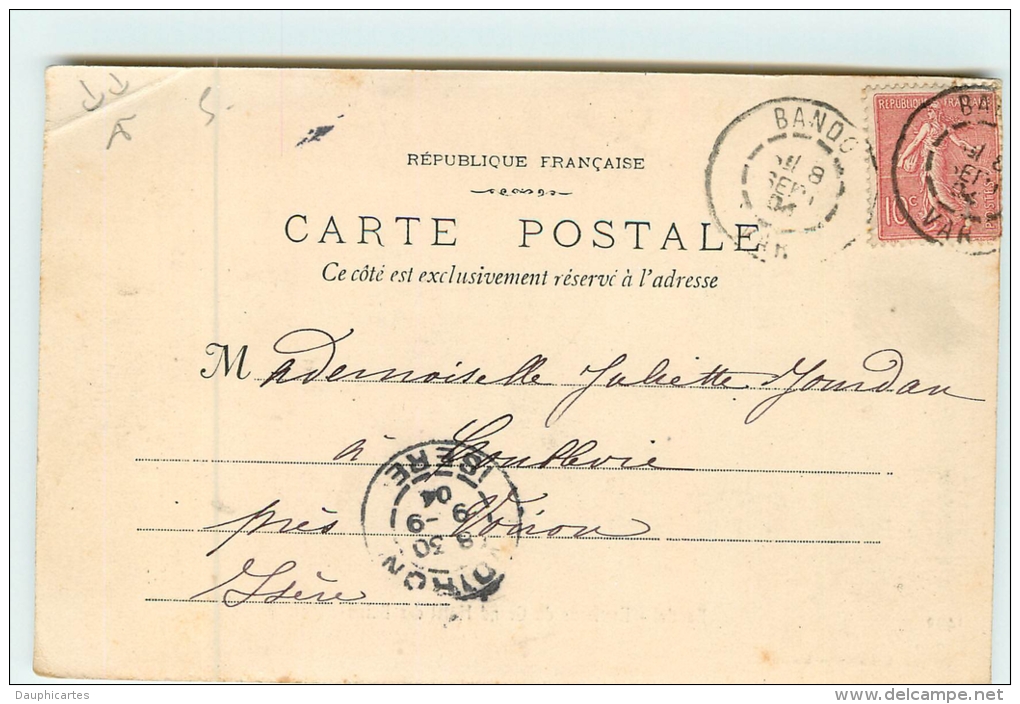 RÉPUBLIQUE FRANÇAISE
CARTE POSTALE
Ce côté est exclusivement réservé à l'adresse
BANDO
8
SEPT
04
VAR
RÉPUBLIQUE FRANÇAISE
10 c
POSTES
BA
8
SEPT
04
VAR
Mademoiselle Juliette Jourdan
à Coublevie
près Voiron
Isère
VOIRON
8 30
9 -9
04
ISERE
Dauphicartes
http://www.delcampe.net